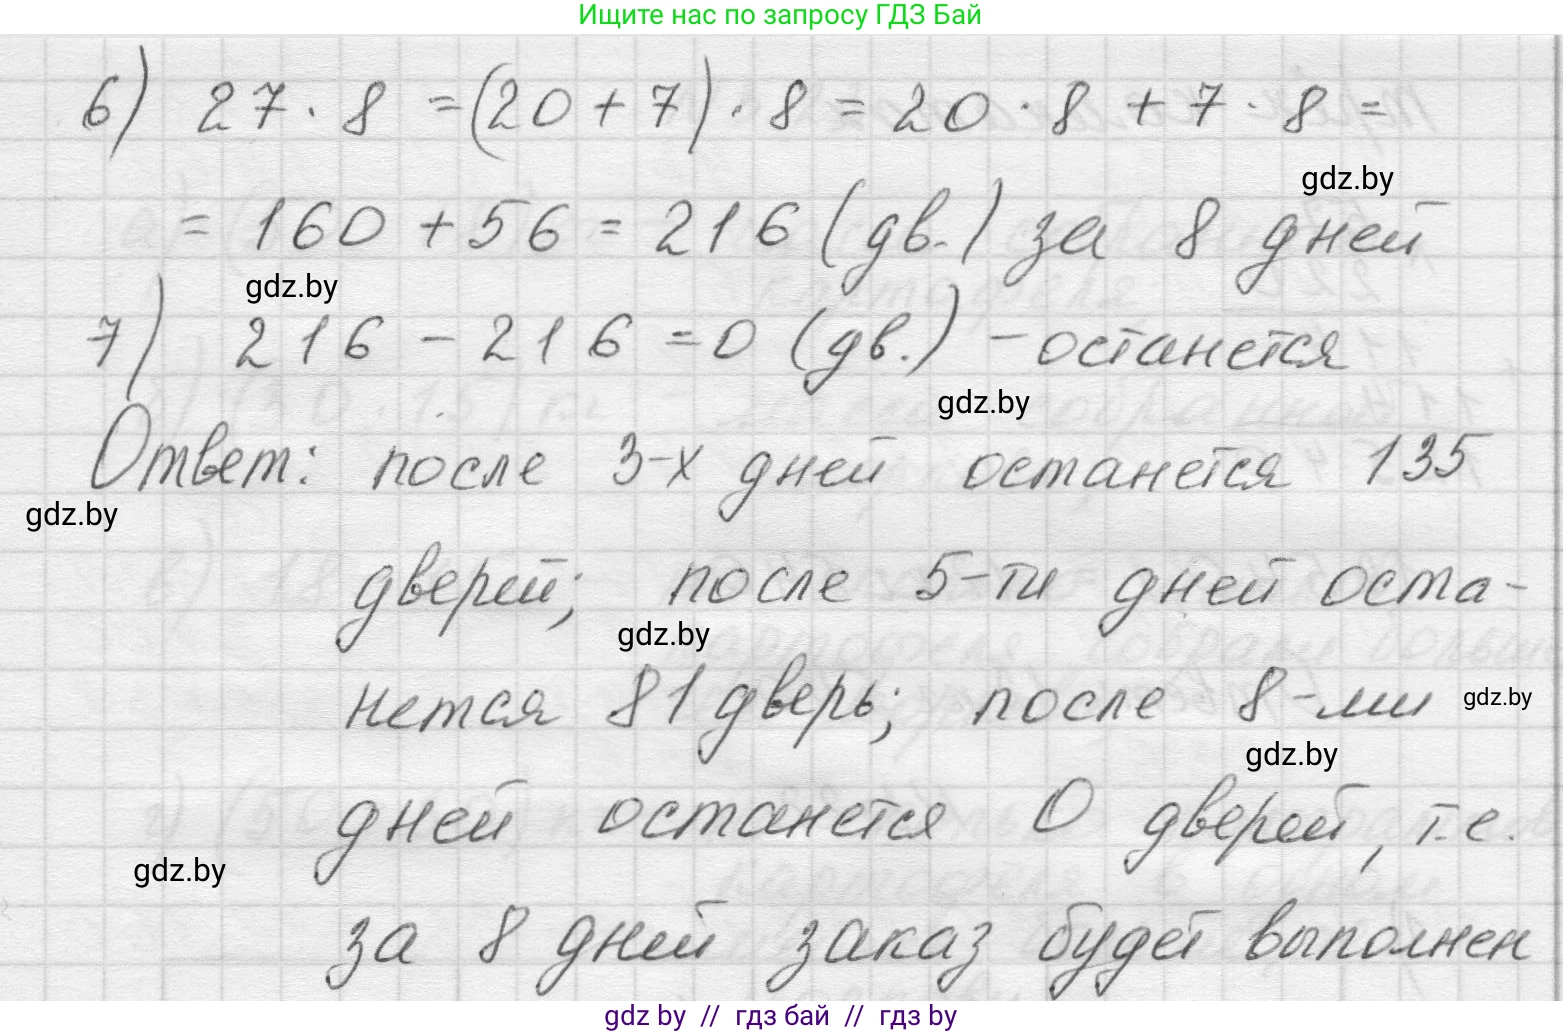 Ищите нас по запросу ГДЗ Бай
6) 27 · 8 = (20 + 7) · 8 = 20 · 8 + 7 · 8 =
gdz.by
= 160 + 56 = 216 (дв.) за 8 дней
gdz.by
7) 216 - 216 = 0 (дв.) - останется
gdz.by
Ответ: после 3-х дней останется 135
gdz.by
дверей; после 5-ти дней оста-
gdz.by
нется 81 дверь; после 8-ми
gdz.by
gdz.by
дней останется 0 дверей, т.е.
gdz.by
за 8 дней заказ будет выполнен
gdz by // гдз бай // гдз by